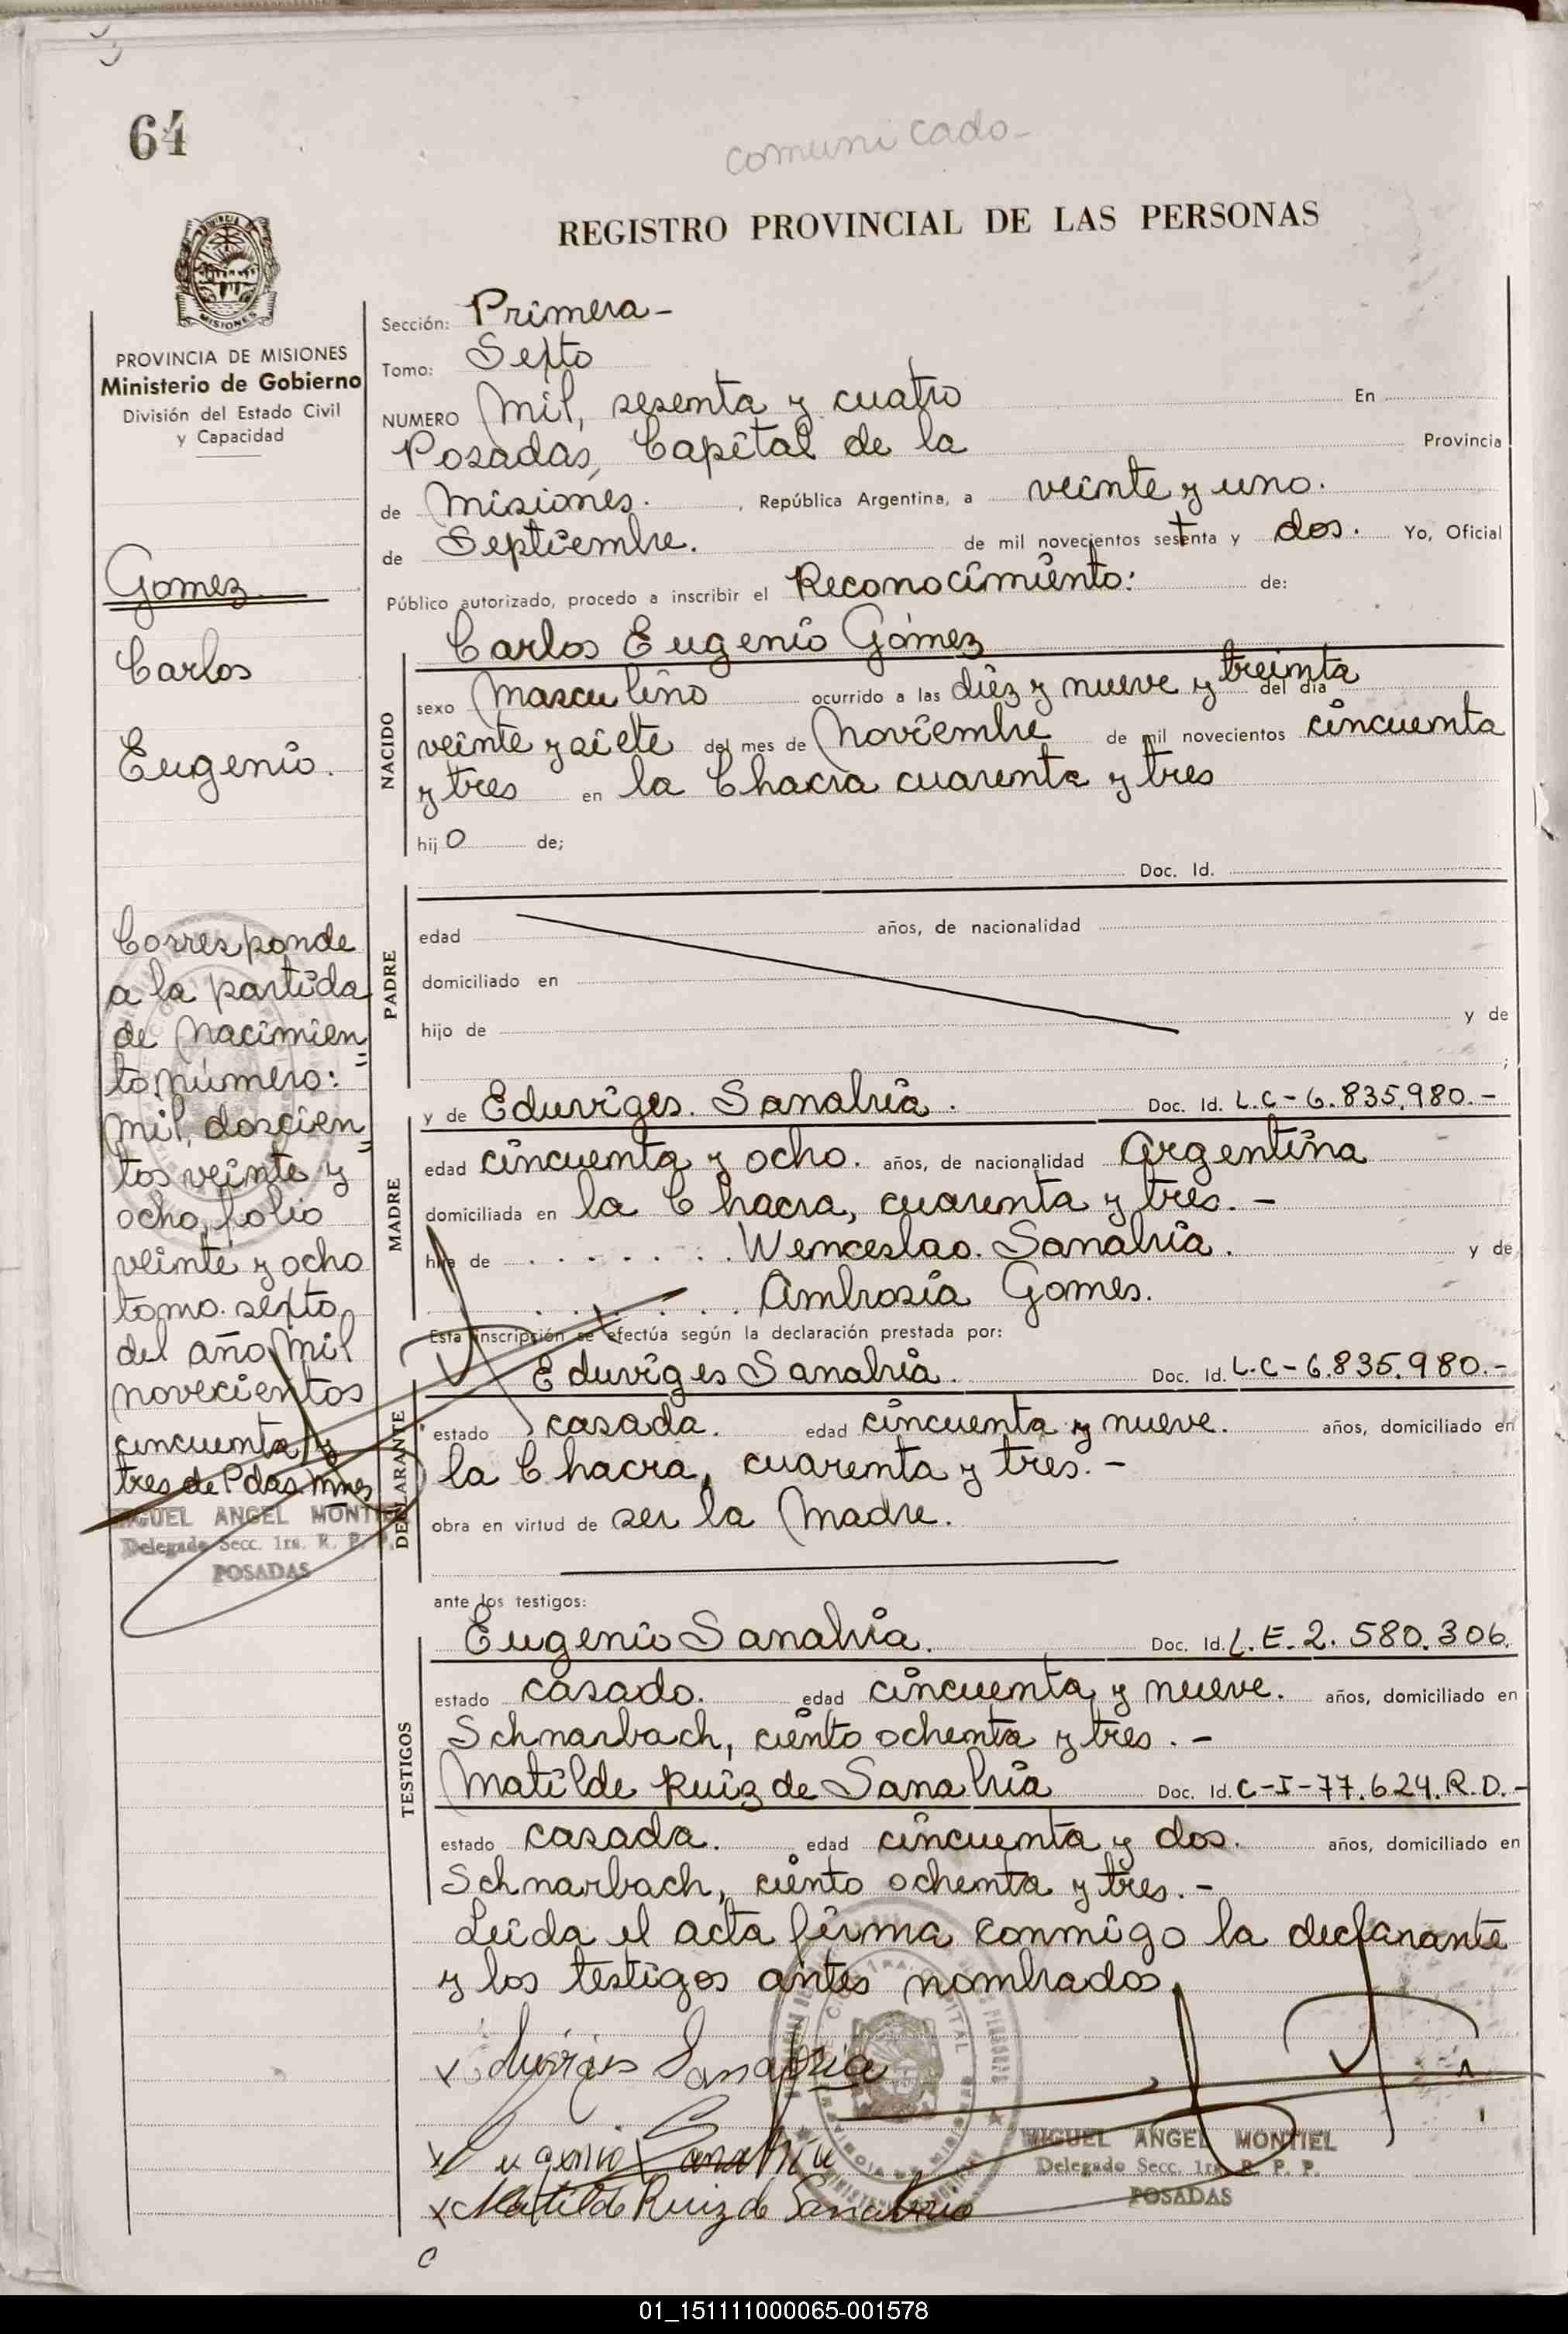 64
comunicado-
REGISTRO PROVINCIAL DE LAS PERSONAS
MISIONES
PROVINCIA DE MISIONES
Ministerio de Gobierno
División del Estado Civil
y Capacidad
Gomez
Carlos
Eugenio.
Corresponde
a la partida
de Nacimien=
to número:
mil, doscien=
tos veinte y
ocho, folio
veinte y ocho
tomo sexto,
del año mil
novecientos
cincuenta y
tres de Pdas. Mnes
MIGUEL ANGEL MONTIEL
Delegado Secc. 1ra. R. P. P.
POSADAS
Sección: Primera-
Tomo: Sexto
NUMERO Mil, sesenta y cuatro En
Posadas, Capital de la Provincia
de Misiones. , República Argentina, a veinte y uno.
de Septiembre. de mil novecientos setenta y dos. Yo, Oficial
Público autorizado, procedo a inscribir el Reconocimiento: de:
Carlos Eugenio Gómez
NACIDO
sexo Masculino ocurrido a las diez y nueve y treinta del día
veinte y siete del mes de Noviembre de mil novecientos cincuenta
y tres en la Chacra cuarenta y tres
hijo de;
Doc. Id.
PADRE
edad años, de nacionalidad
domiciliado en
hijo de y de
;
MADRE
y de Eduviges. Sanabria. Doc. Id. L.C-6.835.980.-
edad cincuenta y ocho. años, de nacionalidad Argentina
domiciliada en la Chacra, cuarenta y tres.-
hija de . . . . . . . Wenceslao. Sanabria. y de
. . . . . . Ambrosia Gomes.
Esta inscripción se efectúa según la declaración prestada por:
DECLARANTE
Eduviges Sanabria. Doc. Id. L.C-6.835.980.-
estado casada. edad cincuenta y nueve. años, domiciliado en
la Chacra, cuarenta y tres.-
obra en virtud de ser la Madre.
ante los testigos:
TESTIGOS
Eugenio Sanabria. Doc. Id. L.E.2.580.306.
estado casado. edad cincuenta y nueve. años, domiciliado en
Schnarbach, ciento ochenta y tres.-
Matilde Ruiz de Sanabria Doc. Id. C-I-77.624.R.D.-
estado casada. edad cincuenta y dos. años, domiciliado en
Schnarbach, ciento ochenta y tres.-
Leida el acta firma conmigo la declarante
y los testigos antes nombrados.
x Sanabria
x Eugenio Sanabria
x Matilde Ruiz de Sanabria
MIGUEL ANGEL MONTIEL
Delegado Secc. 1ra. R. P. P.
POSADAS
01_151111000065-001578